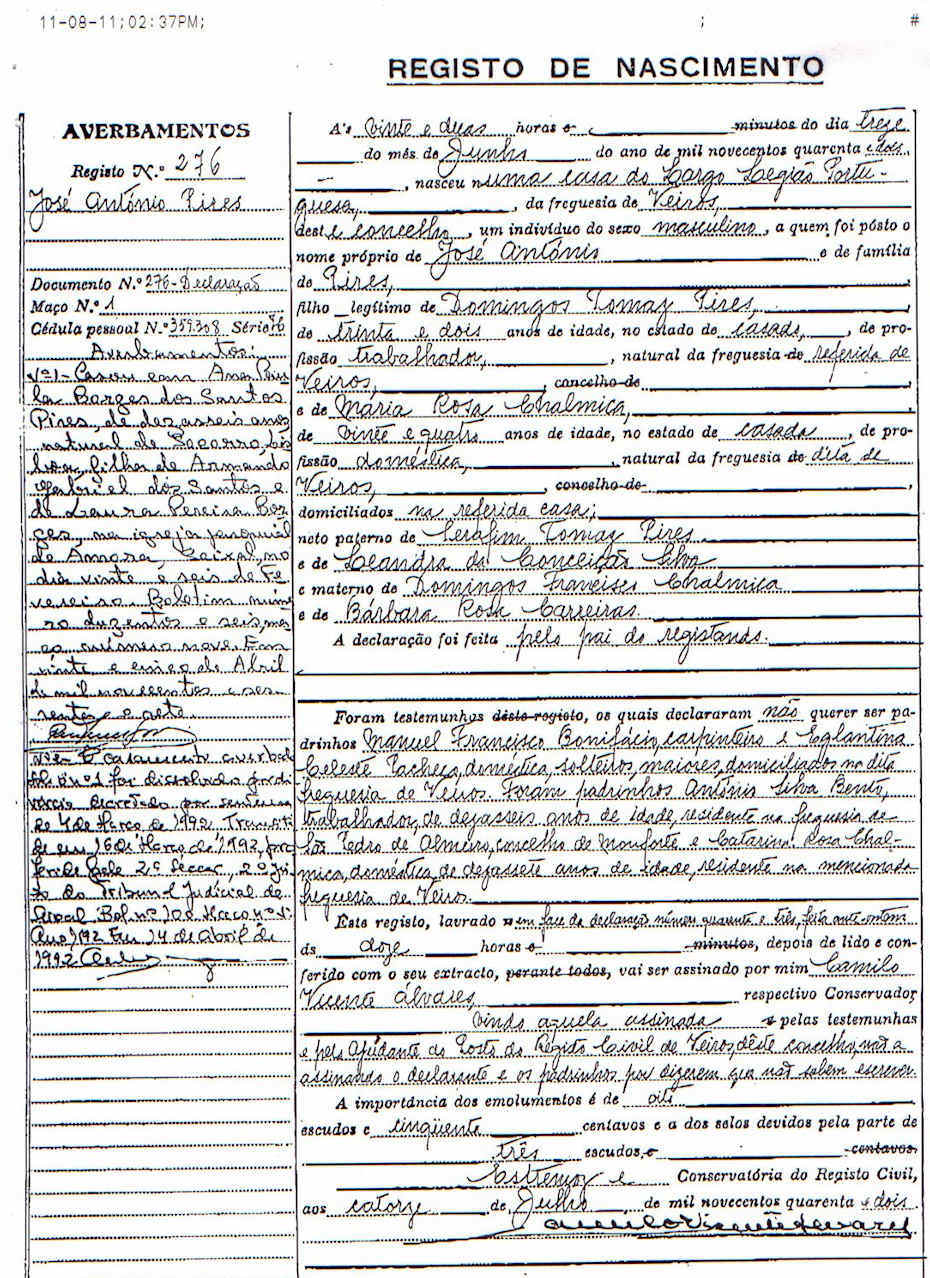 11-08-11;02:37PM; ; #
REGISTO DE NASCIMENTO
AVERBAMENTOS
Registo N.º 276
José António Pires
Documento N.º 276-Declaração
Maço N.º 1
Cédula pessoal N.º 359.308 Série
Averbamentos:
Nº1- Casou com Ana Pau-
la Borges dos Santos
Pires, de dezasseis anos
natural de Socorro, Lis-
boa, filha de Armando
Gabriel dos Santos e
de Laura Pereira Bor-
ges, na igreja paroquial
de Amora, Seixal, no
dia vinte e seis de Fe-
vereiro. Boletim núme-
ro duzentos e seis, ma-
ço número nove. Em
vinte e cinco de Abril
de mil novecentos e ses-
senta e sete.
Nº2- O casamento averbado
sob o nº1 foi dissolvido por di-
vórcio decretado por sentença
de 4 de Março de 1992 Transita-
da em 16 de Março de 1992, pro-
ferida pela 2ª Secção, 2º Juí-
zo do Tribunal Judicial de
Bol. nº 100 Maço nº 1
Ano 1992 Em 14 de Abril de
1992
A's vinte e duas horas e minutos do dia treze
do mês de Junho do ano de mil novecentos quarenta e dois,
, nasceu numa casa do Largo Legião Portu-
guesa, da freguesia de Veiros,
deste concelho, um indivíduo do sexo masculino, a quem foi pôsto o
nome próprio de José António e de família
de Pires,
filho legítimo de Domingos Tomaz Pires,
de trinta e dois anos de idade, no estado de casado, de pro-
fissão trabalhador, natural da freguesia de referida de
Veiros, concelho de
e de Maria Rosa Chalmica,
de vinte e quatro anos de idade, no estado de casada, de pro-
fissão doméstica, natural da freguesia de dita de
Veiros, concelho de
domiciliados na referida casa;
neto paterno de Serafim Tomaz Pires
e de Leandra da Conceição Silva
e materno de Domingos Francisco Chalmica
e de Bárbara Rosa Carreiras.
A declaração foi feita pelo pai do registando.
Foram testemunhas dêste registo, os quais declararam não querer ser pa-
drinhos Manuel Francisco Bonifácio, carpinteiro e Eglantina
Celeste Pacheco, doméstica, solteiros, maiores, domiciliados na dita
freguesia de Veiros. Foram padrinhos António Silva Bento,
trabalhador, de dezasseis anos de idade, residente na freguesia de
São Pedro de Almuro, concelho de Monforte e Catarina Rosa Chal-
mica, doméstica, de dezassete anos de idade, residente na mencionada
freguesia de Veiros.
Este registo, lavrado em face da declaração número quarenta e três, feita ante-ontem
ás doze horas e minutos, depois de lido e con-
ferido com o seu extracto, perante todos, vai ser assinado por mim Camilo
Vicente Álvares, respectivo Conservador
vindo aquela assinada e pelas testemunhas
e pelo Ajudante do Posto do Registo Civil de Veiros, dêste concelho, não a
assinando o declarante e os padrinhos por dizerem que não sabem escrever.
A importância dos emolumentos é de oito
escudos e cinqüenta centavos e a dos selos devidos pela parte de
três escudos, e centavos.
Estremoz e Conservatória do Registo Civil,
aos catorze de Junho de mil novecentos quarenta e dois.
Camilo Vicente Álvares